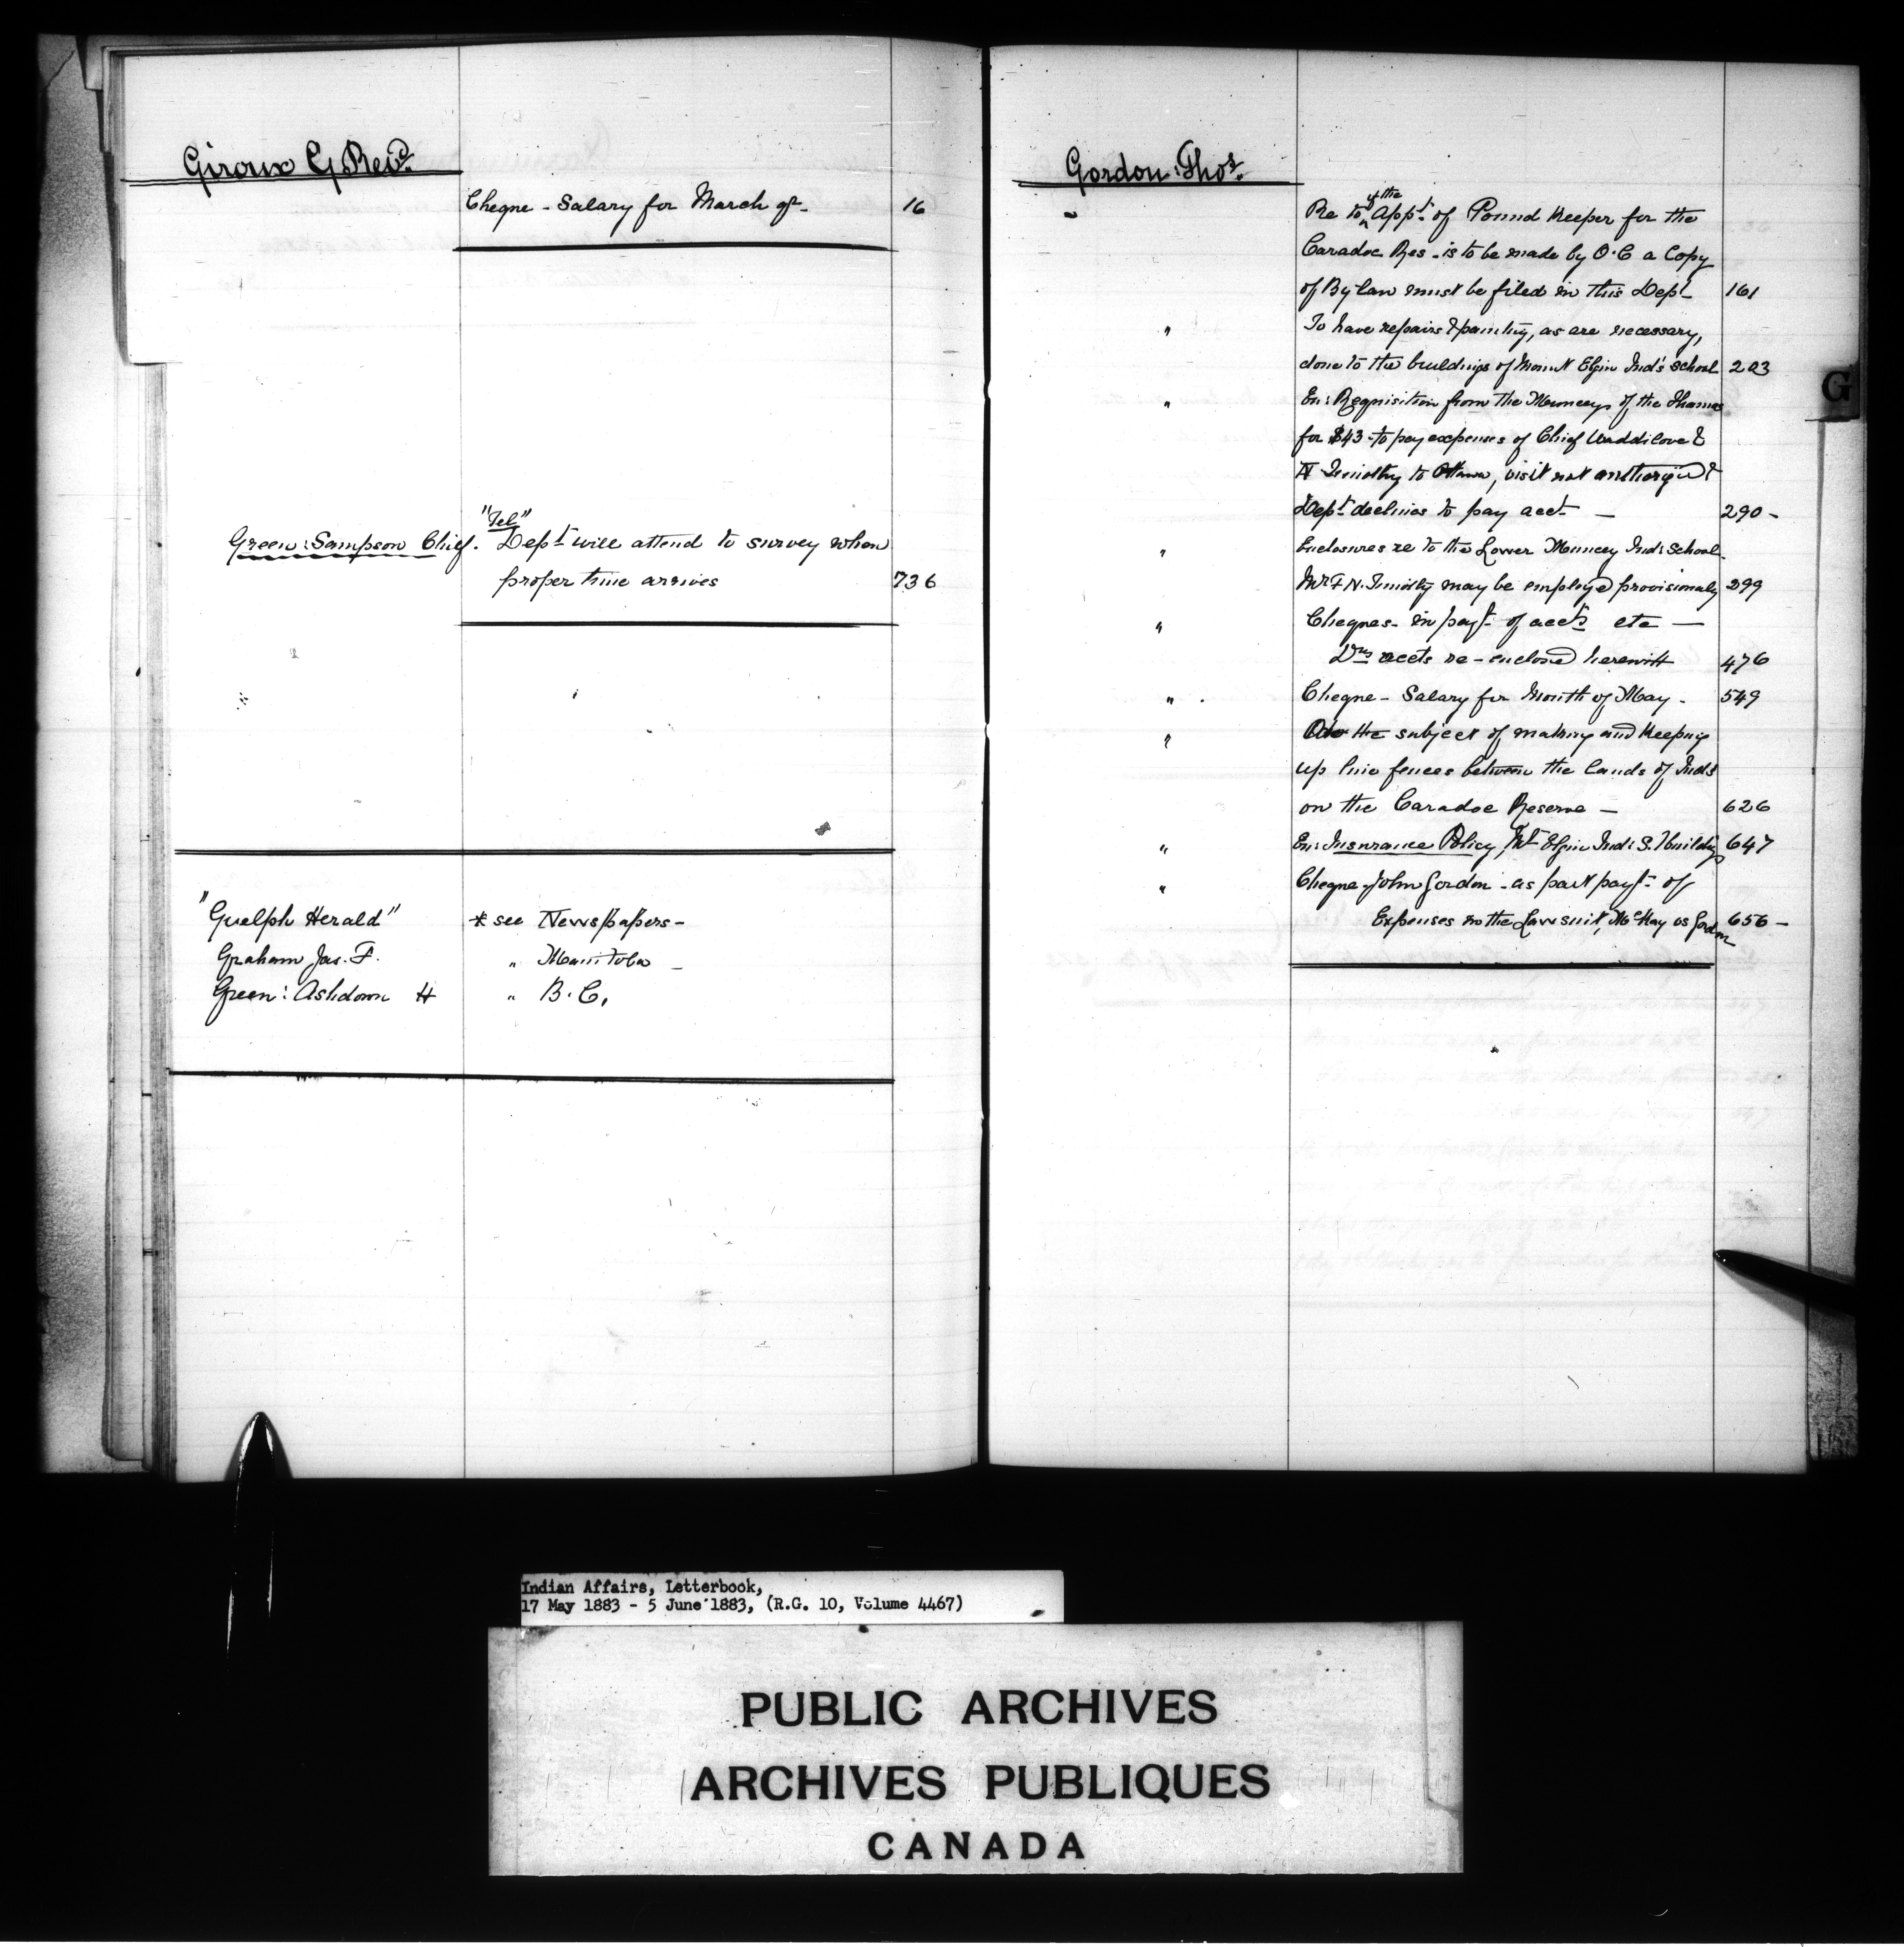 Giroux G Revd.
Cheque - Salary for March qr - 16
"Tel"
Green: Sampson Chief. Dept will attend to survey when
proper time arrives 736
"Guelph Herald" * see Newspapers -
Graham Jas. F. " Manitoba -
Green: Ashdown H " B. C.
Gordon: Thos.
Re to if the Appt. of Pound Keeper for the
Caradoc Res - is to be made by O.C a Copy
of By law must be filed in this Dept - 161
" To have repairs & painting, as are necessary,
done to the buildings of Mount Elgin Ind's School 203
" En: Requisition from the Munceys of the Thames
for $43 - to pay expenses of Chief Waddilove &
Timothy to Ottawa, visit not authorized &
Dept declines to pay acct - 290 -
" Enclosures re to the Lower Muncey Inds School -
Mr F N. Timothy may be employed provisionaly 299
" Cheques - in payt of accts etc —
accts re-enclosed herewith 476
" Cheque - Salary for Month of May - 549
" the subject of making and keeping
up line fences between the lands of Inds
on the Caradoc Reserve — 626
" En: Insurance Policy, Mt Elgin Inds S. Buildings 647
" Cheque - John Gordon - as part payt - of
Expenses in the Lawsuit, McKay vs Gordon 656 -
G
Indian Affairs, Letterbook,
17 May 1883 - 5 June 1883, (R.G. 10, Volume 4467)
PUBLIC ARCHIVES
ARCHIVES PUBLIQUES
CANADA